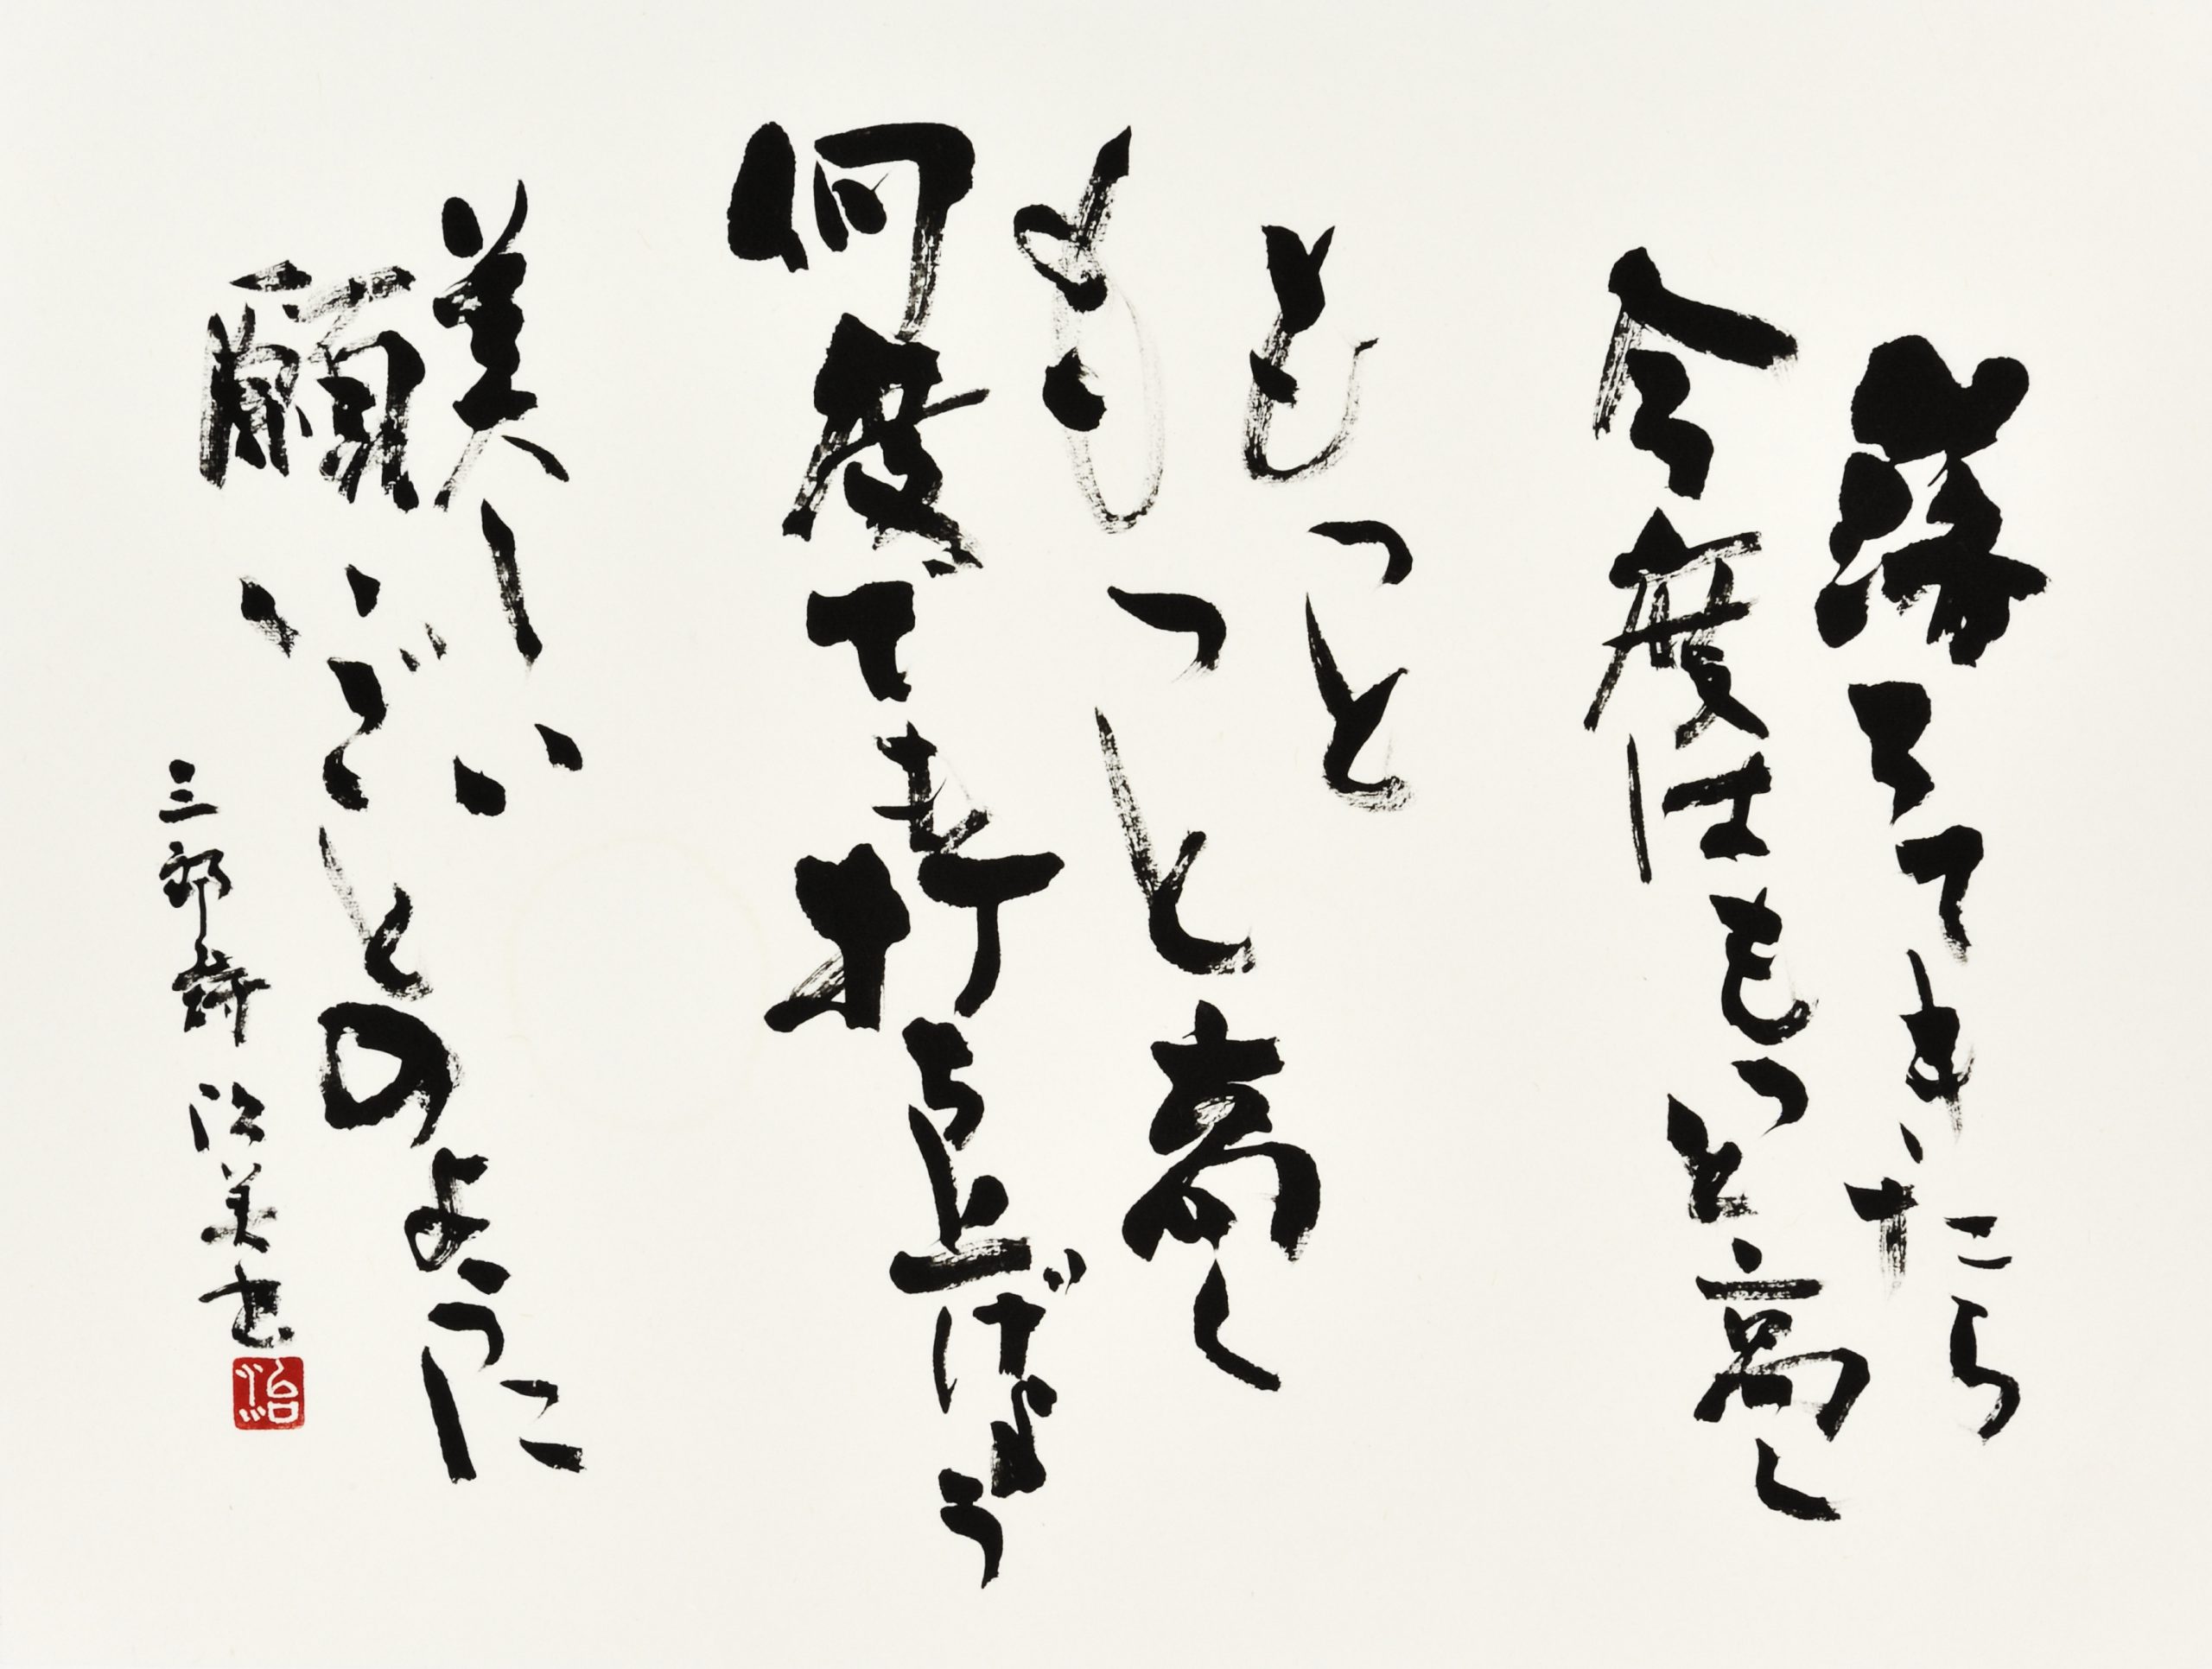 落ちてきたら
今度はもっと高く
もっと
もっと高く
何度でも
打ち上げよう
美しい
願いごとのように
三郎詩 治美書